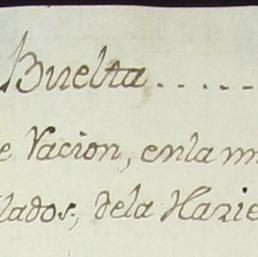 Buelta......
e Vacion, enla m
lados, dela Hazie